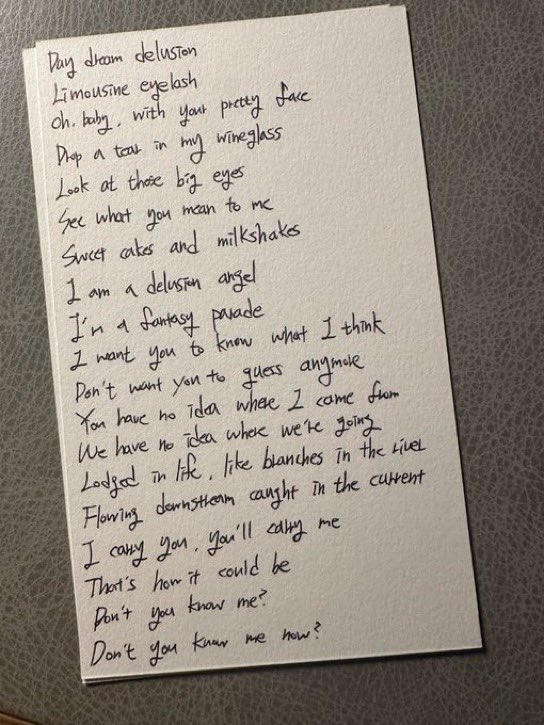 Day dream delusion
Limousine eyelash
Oh, baby, with your pretty face
Drop a tear in my wineglass
Look at those big eyes
See what you mean to me
Sweet cakes and milkshakes
I am a delusion angel
I'm a fantasy parade
I want you to know what I think
Don't want you to guess anymore
You have no idea where I came from
We have no idea where we're going
Lodged in life, like branches in the river
Flowing downstream caught in the current
I carry you, you'll carry me
That's how it could be
Don't you know me?
Don't you know me now?